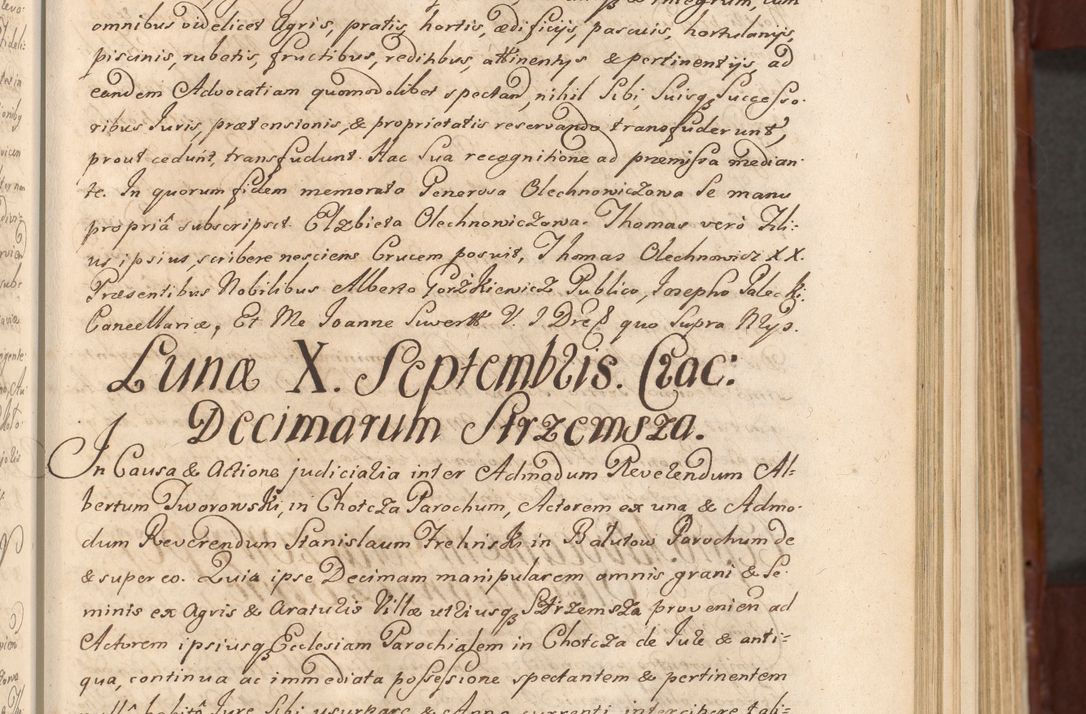 omnibus videlicet Agris, pratis, hortis, ædificijs, pascuis, hortulanijs,
piscinis, rubetis, fructibus, reditibus, attinentijs & pertinentijs, ad
eandem Advocatiam quomodolibet spectan̄, nihil Sibi, Suisq3 Successo-
ribus Juris, prætensionis, & proprietatis reservando transfuderunt,
prout cedunt, transfudunt. Hac Sua recognitione ad præmissa median-
te. In quorum fidem memorata Generosa Olechnowiczowa Se manu
propriâ subscripsit. Elzbieta Olechnowiczowa. Thomas verò Fili-
us ipsius, scribere nesciens Crucem posuit, Thomas Olechnowicz XX.
Præsentibus Nobilibus Alberto Gorzkiewicz Publico, Josepho Salecki
Cancellariæ, Et Me Joanne Suwertt V. J Drē quo Supra Ntijs.
Lunæ X. Septembris. Crac:
Decimarum Strzemsza.
In Causa & Actione judicialia inter Admodum Reverendum Al-
bertum Tworowski, in Chotcza Parochum, Actorem ex una & Admo-
dum Reverendum Stanislaum Trelinski in Bałutow Parochum de
& super eo. Quia ipse Decimam manipularem omnis grani & Se-
minis ex Agris & Araturis Villæ utriusq3 Strzemsza provenien̄ ad
Actorem ipsiusq3 Ecclesiam Parochialem in Chotcza de Jure & anti-
qua, continua ac immediata possessione spectantem & pertinentem
habitâ Jure Sibi usurpare & Anno currenti intercipere